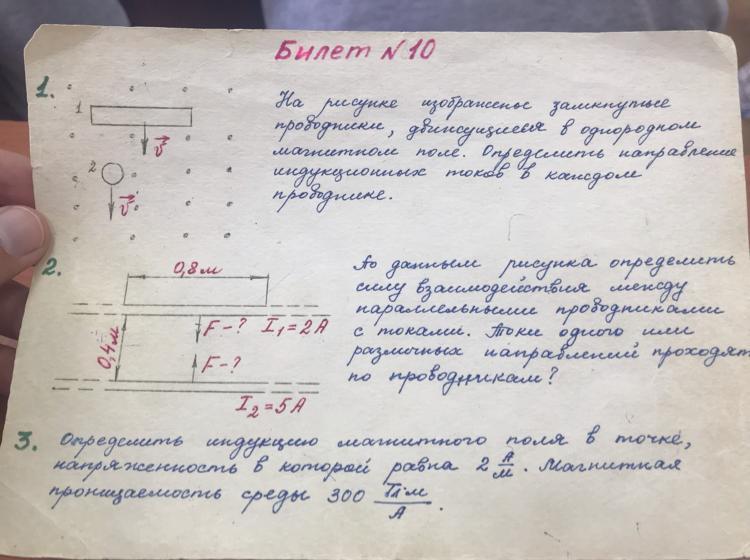 Билет N 10
1.
1
v
2
v
На рисунке изображены замкнутые
проводники, движущиеся в однородном
магнитном поле. Определить направление
индукционных токов в каждом
проводнике.
2.
0,8м
0,4м
F-?
I₁=2А
F-?
I₂=5А
По данным рисунка определить
силу взаимодействия между
параллельными проводниками
с токами. Токи одного или
различных направлений проходят
по проводникам?
3. Определить индукцию магнитного поля в точке,
напряженность в которой равна 2 А/м. Магнитная
проницаемость среды 300 Тл·м/А.